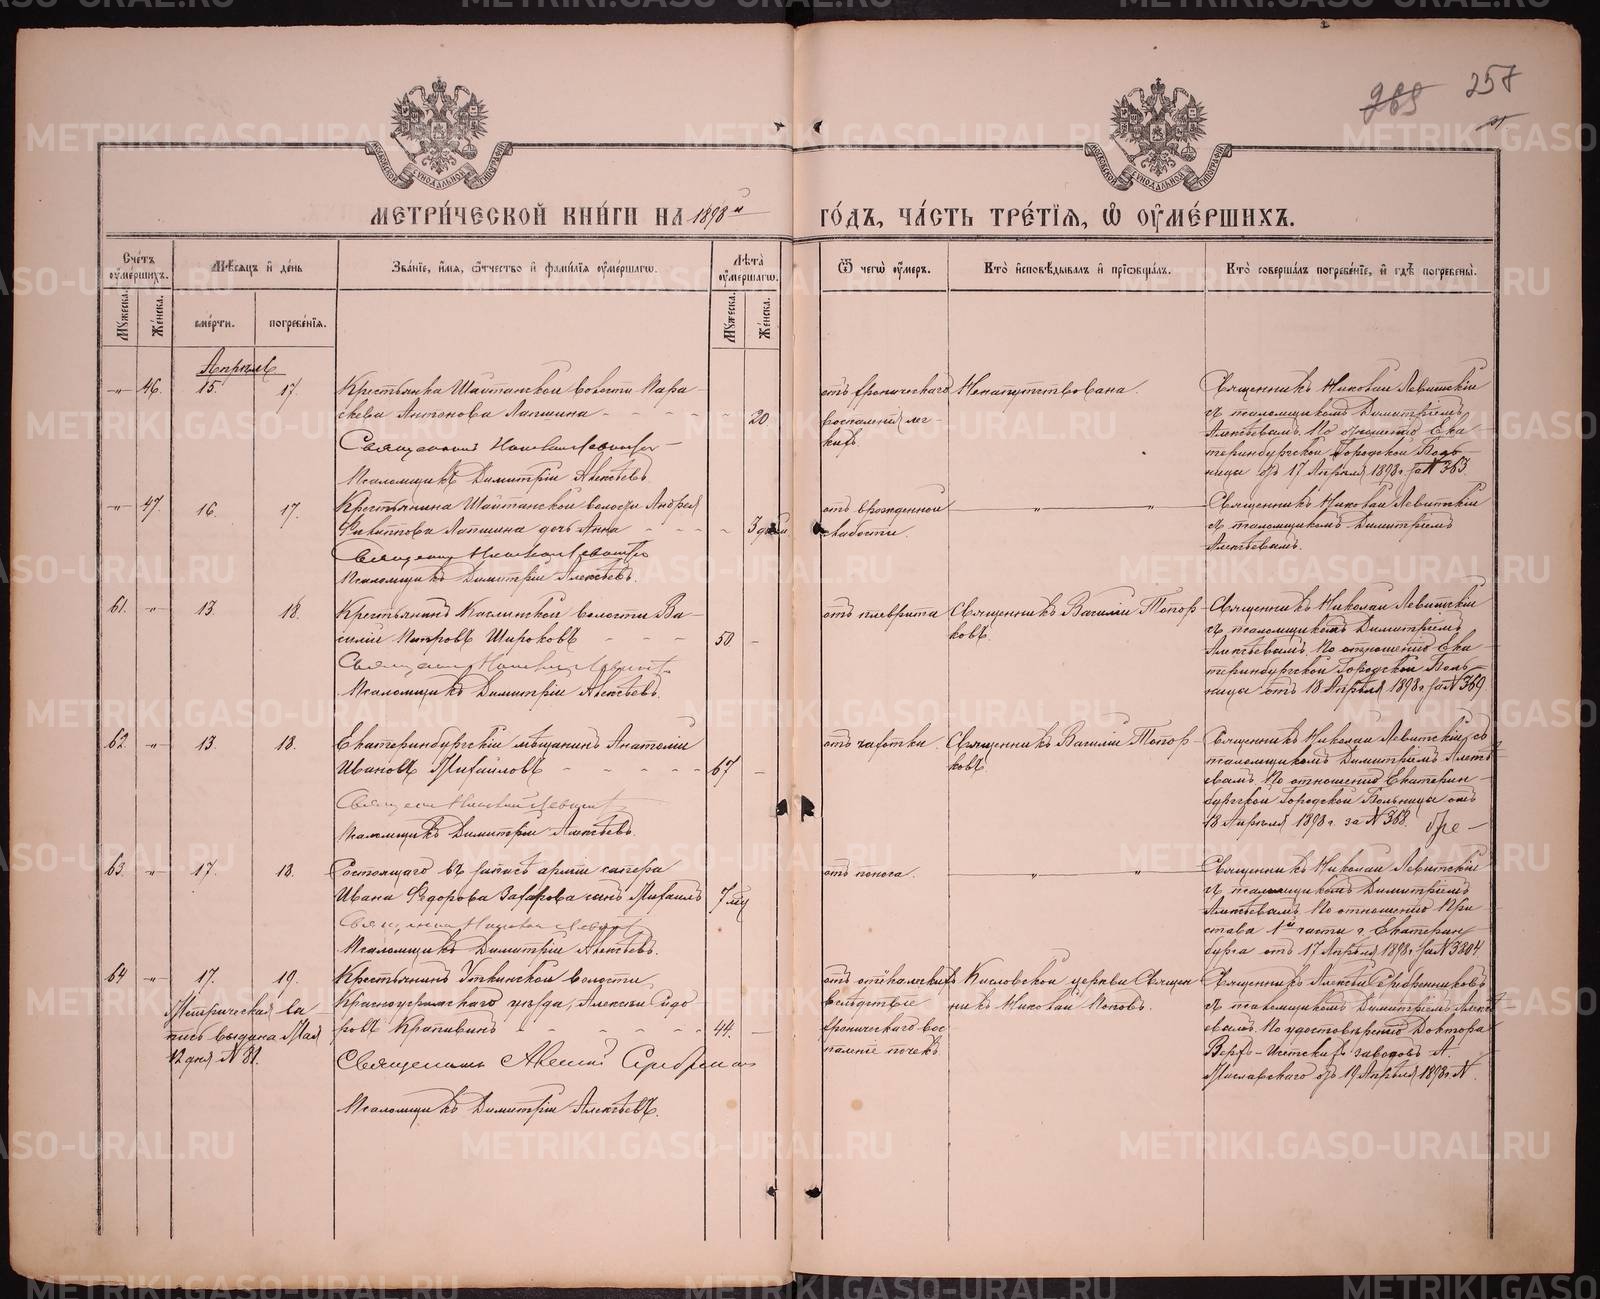 265 257
МОСКОВСКОЙ СУНОДАЛЬНОЙ ТИПОГРАФІИ
МОСКОВСКОЙ СУНОДАЛЬНОЙ ТИПОГРАФІИ
МЕТРИ́ЧЕСКОЙ КНИ́ГИ НА 1898й ГО́ДЪ, ЧА́СТЬ ТРЕ́ТІѦ, Ѽ ОУМЕ́РШИХЪ.
Сче́тъ оуме́ршихъ.
Мѣ́сѧцъ и҆ де́нь
Зва́ніе, и҆́мѧ, ѻ҆́тчество и҆ фами́ліѧ оуме́ршагѡ.
Лѣ́та оуме́ршагѡ.
Ѿ чегѡ̀ оу́меръ.
Кто̀ и҆сповѣ́дывалъ и҆ прїѡбща́лъ.
Кто̀ соверша́лъ погребе́ніе, и҆ гдѣ̀ погребены̀.
Мꙋ́жеска.
Же́нска.
сме́рти.
погребе́ніѧ.
Мꙋ́жеска.
Же́нска.
Апрѣль
-"- 46. 15. 17. Крестьянка Шайтанской волости Пара-
скева Антонова Лапшина - - - - - 20
Священникъ Николай Левитскій
Псаломщикъ Димитрій Алексѣевъ.
отъ хроническаго
воспаленія лег-
кихъ.
Ненапутствована.
Священникъ Николай Левитскій
съ псаломщикомъ Димитріемъ
Алексѣевымъ. По отношенію Ека-
теринбургской Городской Боль-
ницы отъ 17 Апрѣля 1898 г. за № 363
-"- 47. 16. 17. Крестьянина Шайтанской волости Андрея
Лапшина дочь Анна - - - " 3 дней
Священникъ Николай Левитскій
Псаломщикъ Димитрій Алексѣевъ.
отъ врожденной
слабости.
" "
Священникъ Николай Левитскій
съ псаломщикомъ Димитріемъ
Алексѣевымъ.
61. -"- 13. 18. Крестьянинъ Каслинской волости Ва-
силій Петровъ Широковъ - - - 50. -
Священникъ Николай Левитскій
Псаломщикъ Димитрій Алексѣевъ.
отъ плеврита
Священникъ Василій Топор-
ковъ.
Священникъ Николай Левитскій
съ псаломщикомъ Димитріемъ
Алексѣевымъ. По отношенію Ека-
теринбургской Городской Боль-
ницы отъ 18 Апрѣля 1898 г. за № 369.
62. -"- 13. 18. Екатеринбургскій мѣщанинъ Анатолій
Ивановъ Михайловъ - - - - - 67 -
Священникъ Николай Левитскій
Псаломщикъ Димитрій Алексѣевъ.
отъ чахотки.
Священникъ Василій Топор-
ковъ.
Священникъ Николай Левитскій съ
псаломщикомъ Димитріемъ Алексѣ-
евымъ. По отношенію Екатерин-
бургской Городской Больницы отъ
18 Апрѣля 1898 г. за № 368.
63. -"- 17. 18. Состоящаго въ запасѣ арміи сапера
Ивана Ѳедорова Захарова сынъ Михаилъ 7 мѣц
Священникъ Николай Левитскій
Псаломщикъ Димитрій Алексѣевъ.
отъ поноса.
" "
Священникъ Николай Левитскій
съ псаломщикомъ Димитріемъ
Алексѣевымъ. По отношенію При
става 1й части г. Екатерин
бурга отъ 17 Апрѣля 1898 г. за № 3804.
64 -"- 17. 19. Крестьянинъ Уткинской волости,
Красноуфимскаго уѣзда, Алексѣй Сидо-
ровъ Крапивинъ - - - - - 44. -
Священникъ Алексій Серебренниковъ
Псаломщикъ Димитрій Алексѣевъ.
Метрическая вы-
пись выдана Мая
12 дня № 81.
вслѣдствіе
хроническаго вос
паленіе почекъ
Кисловской церкви Священ
никъ Николай Поповъ.
Священникъ Алексій Серебренниковъ
съ псаломщикомъ Димитріемъ Алексѣ
евымъ. По удостовѣренію Доктора
Верхъ-Исетскихъ заводовъ А.
Миславскаго отъ 19 Апрѣля 1898 г. №.
METRIKI.GASO-URAL.RU